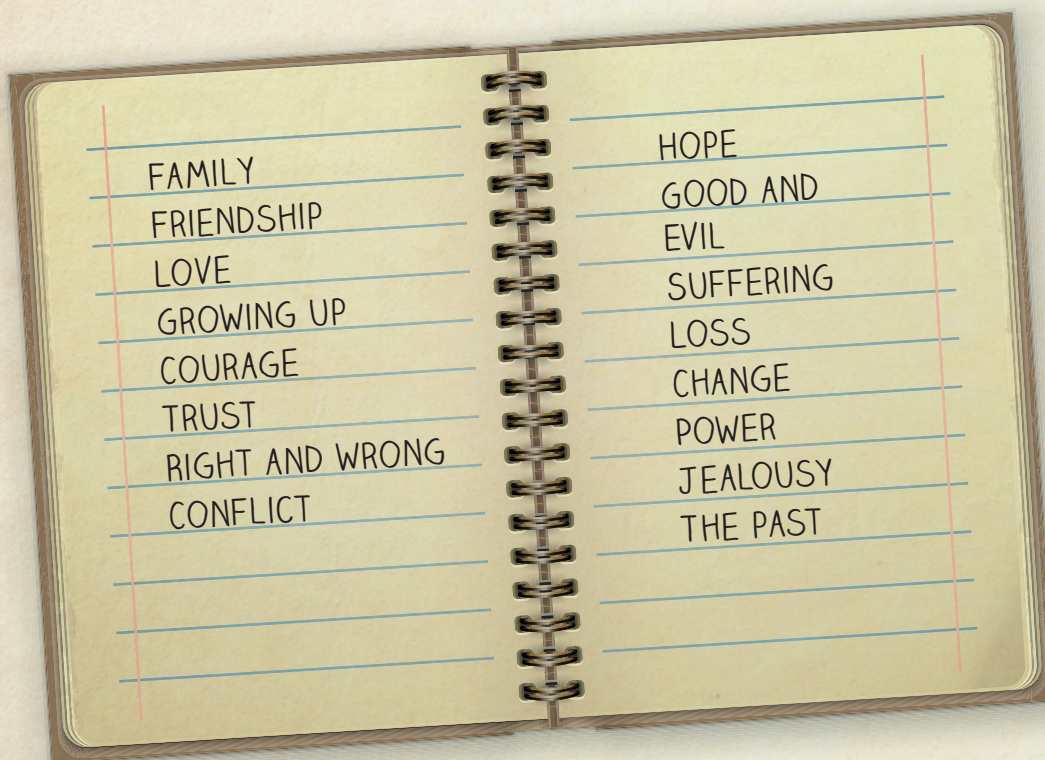 FAMILY
FRIENDSHIP
LOVE
GROWING UP
COURAGE
TRUST
RIGHT AND WRONG
CONFLICT
HOPE
GOOD AND
EVIL
SUFFERING
LOSS
CHANGE
POWER
JEALOUSY
THE PAST